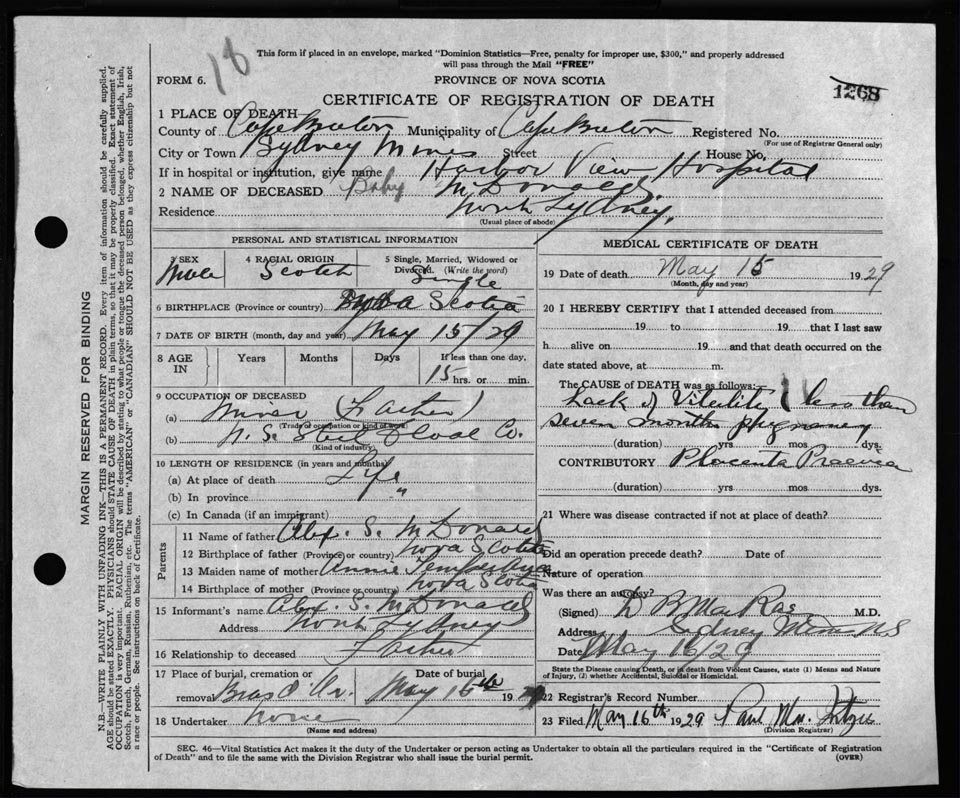 18
This form if placed in an envelope, marked "Dominion Statistics—Free, penalty for improper use, $300," and properly addressed
will pass through the Mail "FREE"
FORM 6. PROVINCE OF NOVA SCOTIA
1268
CERTIFICATE OF REGISTRATION OF DEATH
1 PLACE OF DEATH
County of Cape Breton Municipality of Cape Breton Registered No.
(For use of Registrar General only)
City or Town Sydney Mines Street House No.
If in hospital or institution, give name Harbor View Hospital
2 NAME OF DECEASED Baby McDonald
Residence North Sydney.
(Usual place of abode)
PERSONAL AND STATISTICAL INFORMATION
3 SEX Male
4 RACIAL ORIGIN Scotch
5 Single, Married, Widowed or
Divorced. (Write the word) Single
6 BIRTHPLACE (Province or country) Nova Scotia
7 DATE OF BIRTH (month, day and year) May 15/29
8 AGE IN Years Months Days If less than one day,
15 hrs. or min.
9 OCCUPATION OF DECEASED
(a) Miner (Father)
(Trade or occupation or kind of work)
(b) N. S. Steel & Coal Co.
(Kind of industry)
10 LENGTH OF RESIDENCE (in years and months)
(a) At place of death Life
(b) In province "
(c) In Canada (if an immigrant)
Parents
11 Name of father Alex. S. McDonald
12 Birthplace of father (Province or country) Nova Scotia
13 Maiden name of mother Annie
14 Birthplace of mother (Province or country) Nova Scotia
15 Informant's name Alex. S. McDonald
Address North Sydney
16 Relationship to deceased Father
17 Place of burial, cremation or Date of burial
removal Bras d'Or. May 16th 19 29
18 Undertaker none
(Name and address)
MEDICAL CERTIFICATE OF DEATH
19 Date of death May 15 1929
(Month, day and year)
20 I HEREBY CERTIFY that I attended deceased from
19 to 19 that I last saw
h alive on 19 and that death occurred on the
date stated above, at m.
The CAUSE of DEATH was as follows:
Lack of Vitality less than
seven months pregnancy
(duration) yrs mos dys.
CONTRIBUTORY Placenta Praevia
(duration) yrs. mos. dys.
21 Where was disease contracted if not at place of death?
Did an operation precede death? Date of
Nature of operation
Was there an autopsy?
(Signed) D B MacRae M.D.
Address Sydney Mines NS
Date May 16/29
State the Disease causing Death, or in death from Violent Causes, state (1) Means and Nature
of Injury, (2) whether Accidental, Suicidal or Homicidal.
22 Registrar's Record Number
23 Filed May 16th 1929
(Division Registrar)
SEC. 46—Vital Statistics Act makes it the duty of the Undertaker or person acting as Undertaker to obtain all the particulars required in the "Certificate of Registration
of Death" and to file the same with the Division Registrar who shall issue the burial permit. (OVER)
MARGIN RESERVED FOR BINDING
N.B.—WRITE PLAINLY WITH UNFADING INK—THIS IS A PERMANENT RECORD. Every item of information should be carefully supplied.
AGE should be stated EXACTLY. PHYSICIANS should STATE CAUSE OF DEATH in plain terms, so that it may be properly classified. Exact statement of
OCCUPATION is very important. RACIAL ORIGIN will be described by stating to what people or tongue the deceased person belonged, whether English, Irish,
Scotch, French, German, Russian, Ruthenian, etc. The terms "AMERICAN" or "CANADIAN" SHOULD NOT BE USED as they express citizenship but not
a race or people. See instructions on back of Certificate.